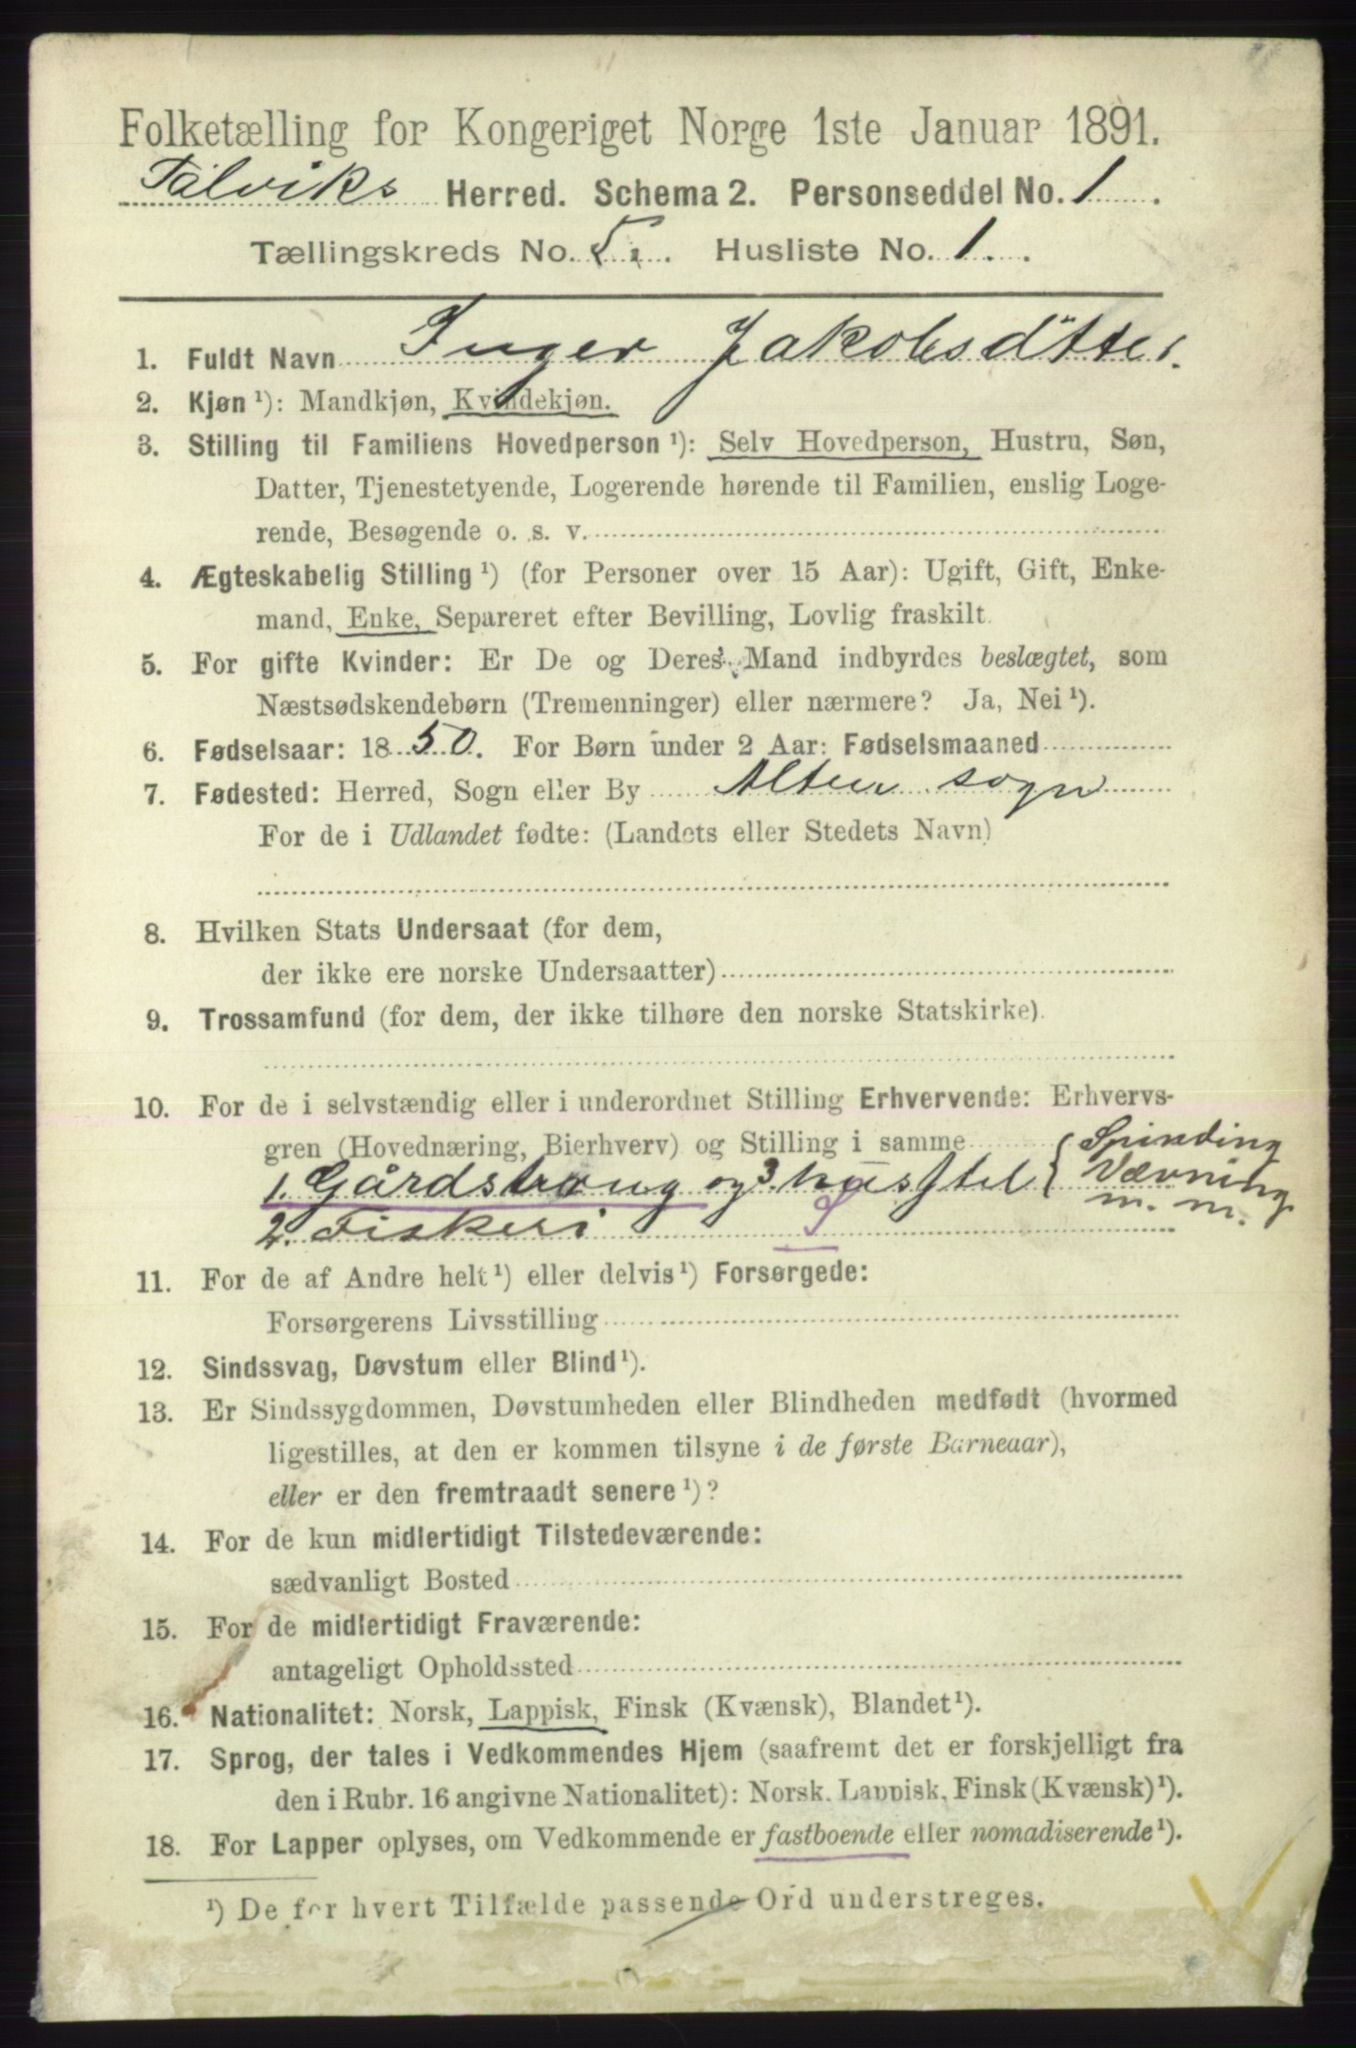 Folketælling for Kongeriget Norge 1ste Januar 1891.
Talviks Herred. Schema 2. Personseddel No. 1.
Tællingskreds No. 5. Husliste No. 1.
1. Fuldt Navn Inger Jakobsdtter.
2. Kjøn ¹): Mandkjøn, Kvindekjøn.
3. Stilling til Familiens Hovedperson ¹): Selv Hovedperson, Hustru, Søn,
Datter, Tjenestetyende, Logerende hørende til Familien, enslig Loge-
rende, Besøgende o. s. v.
4. Ægteskabelig Stilling ¹) (for Personer over 15 Aar): Ugift, Gift, Enke-
mand, Enke, Separeret efter Bevilling, Lovlig fraskilt
5. For gifte Kvinder: Er De og Deres Mand indbyrdes beslægtet, som
Næstsødskendebørn (Tremenninger) eller nærmere? Ja, Nei ¹).
6. Fødselsaar: 1850. For Børn under 2 Aar: Fødselsmaaned
7. Fødested: Herred, Sogn eller By Alten sogn
For de i Udlandet fødte: (Landets eller Stedets Navn)
8. Hvilken Stats Undersaat (for dem,
der ikke ere norske Undersaatter)
9. Trossamfund (for dem, der ikke tilhøre den norske Statskirke).
10. For de i selvstændig eller i underordnet Stilling Erhvervende: Erhvervs-
gren (Hovednæring, Bierhverv) og Stilling i samme { Spinding
1. Gårdsbrug og 3. husflid Vævning
2. Fiskeri S m. m.
11. For de af Andre helt ¹) eller delvis ¹) Forsørgede:
Forsørgerens Livsstilling
12. Sindssvag, Døvstum eller Blind ¹).
13. Er Sindssygdommen, Døvstumheden eller Blindheden medfødt (hvormed
ligestilles, at den er kommen tilsyne i de første Barneaar),
eller er den fremtraadt senere ¹)?
14. For de kun midlertidigt Tilstedeværende:
sædvanligt Bosted
15. For de midlertidigt Fraværende:
antageligt Opholdssted
16. Nationalitet: Norsk, Lappisk, Finsk (Kvænsk), Blandet ¹).
17. Sprog, der tales i Vedkommendes Hjem (saafremt det er forskjelligt fra
den i Rubr. 16 angivne Nationalitet): Norsk, Lappisk, Finsk (Kvænsk) ¹).
18. For Lapper oplyses, om Vedkommende er fastboende eller nomadiserende ¹).
¹) De for hvert Tilfælde passende Ord understreges.